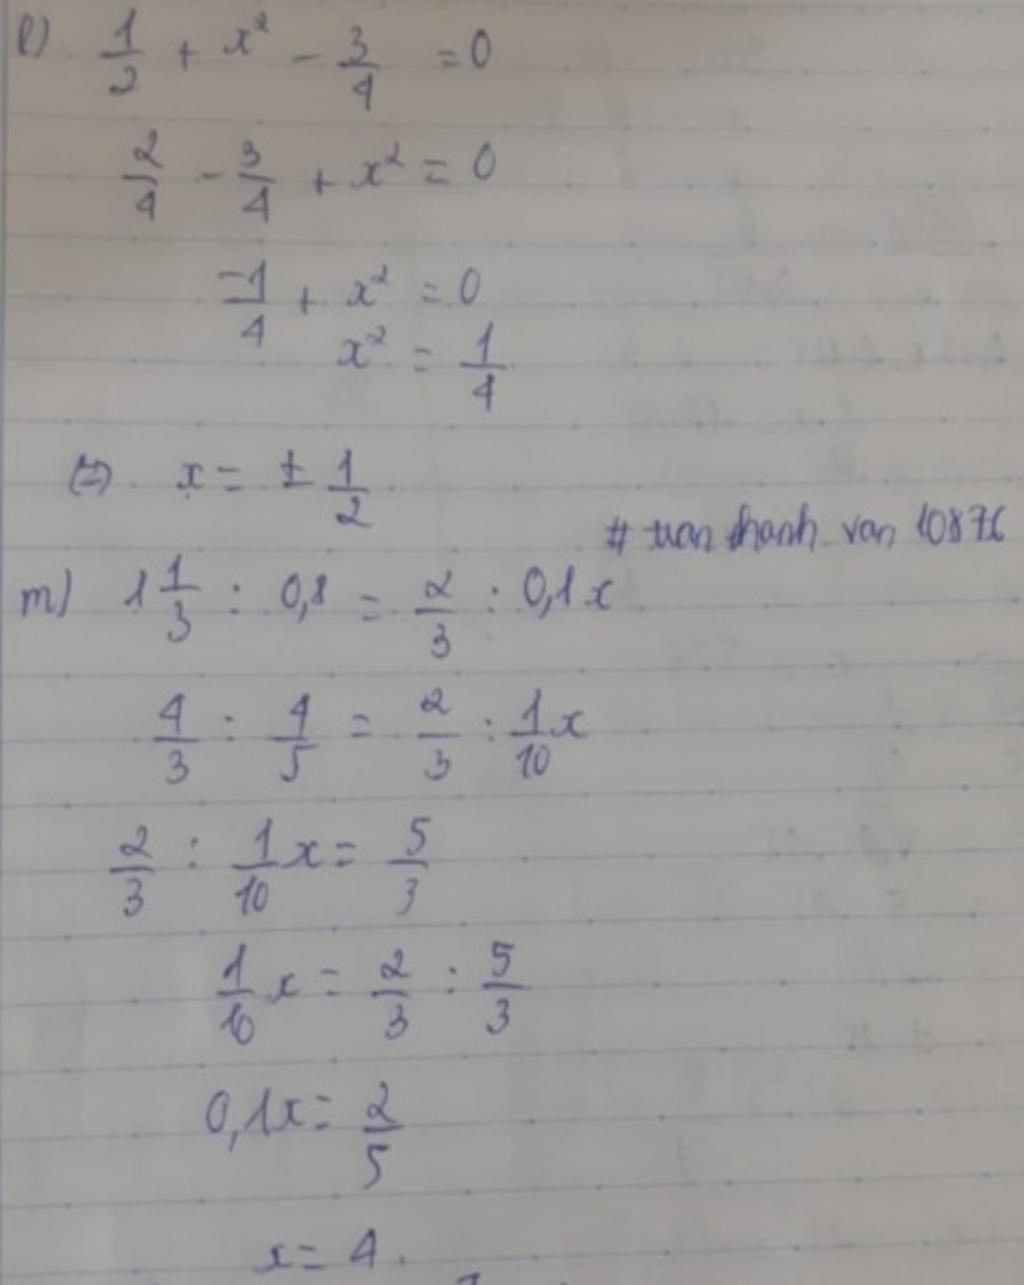 l) 1/2 + x² - 3/4 = 0
2/4 - 3/4 + x² = 0
-1/4 + x² = 0
x² = 1/4
(=) x = ± 1/2
# tran thanh van 10876
m) 1 1/3 : 0,8 = 2/3 : 0,1x
4/3 : 4/5 = 2/3 : 1/10 x
2/3 : 1/10 x = 5/3
1/10 x = 2/3 : 5/3
0,1x = 2/5
x = 4.